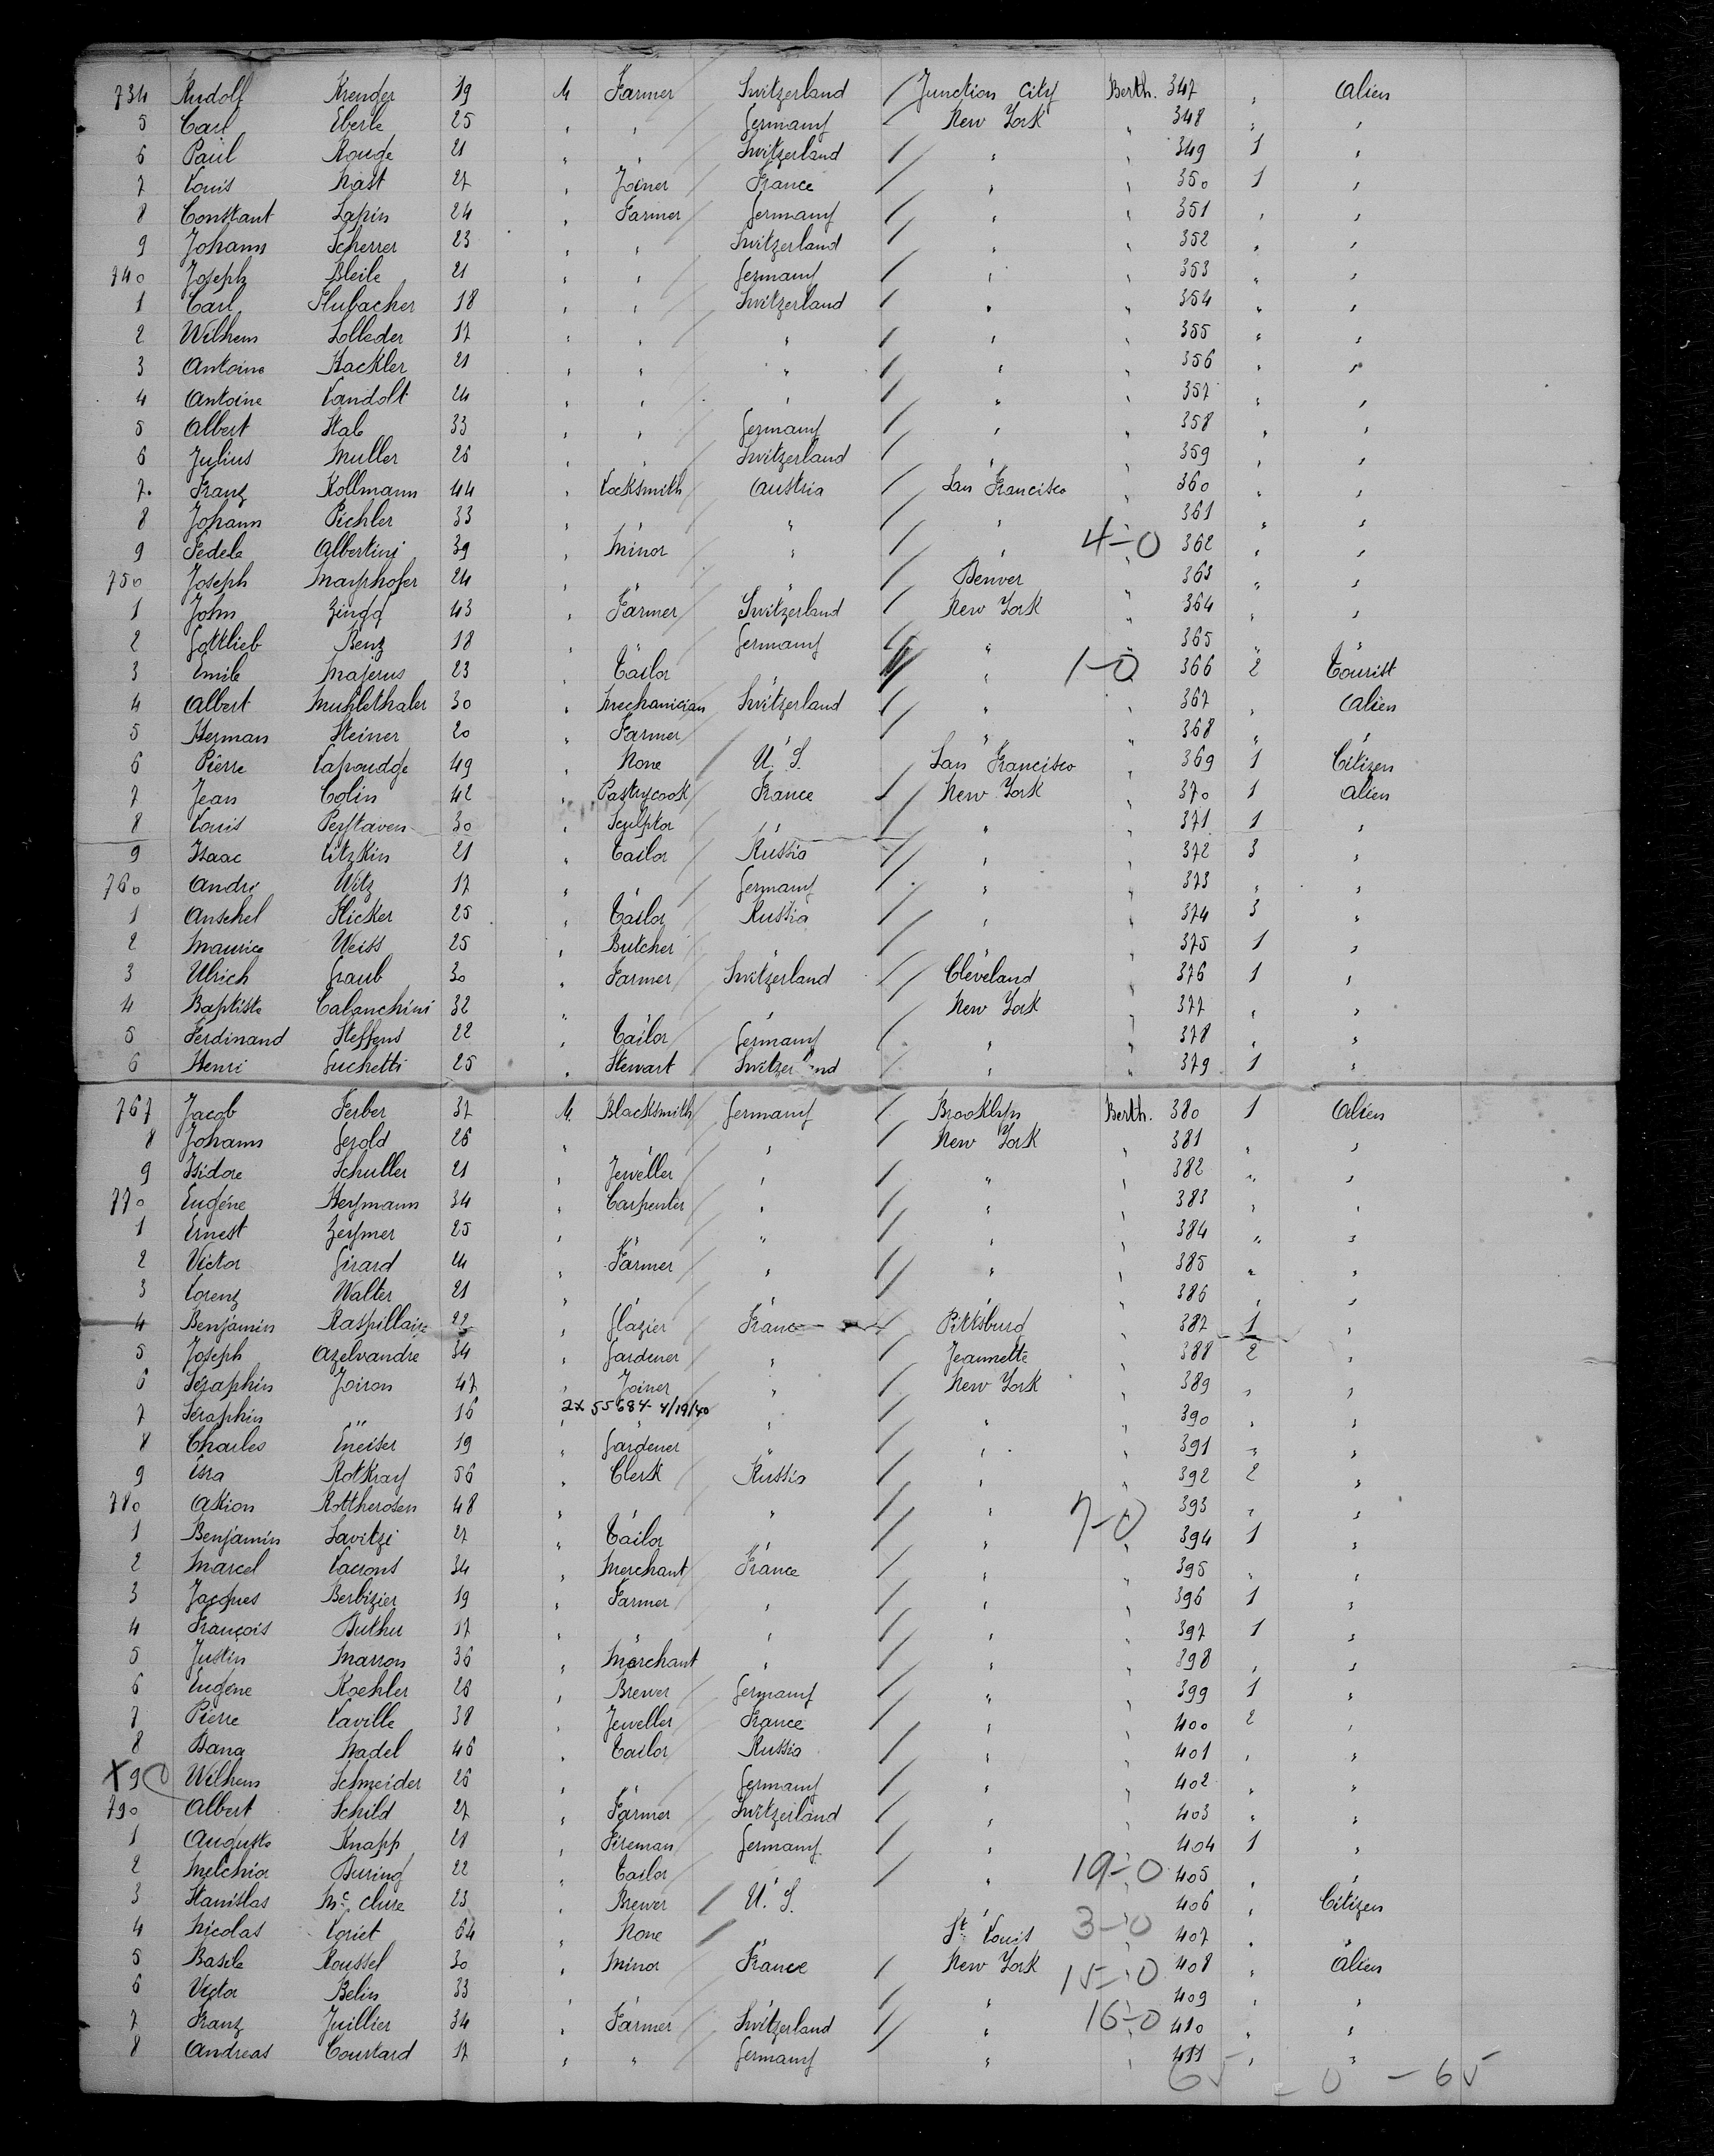 734 Rudolf Krenger 19 M Farmer Switzerland / Junction City Berth. 347 " Alien
5 Carl Eberle 25 " " Germany / New York " 348 " "
6 Paul Rouge 21 " " Switzerland / " " 349 1 "
7 Louis Nast 27 " Joiner France / " " 350 1 "
8 Constant Lapin 24 " Farmer Germany / " " 351 " "
9 Johann Scherrer 23 " " Switzerland / " " 352 " "
740 Joseph Bleile 21 " " Germany / " " 353 " "
1 Carl Hubacher 18 " " Switzerland / " " 354 " "
2 Wilhem Solleder 17 " " " / " " 355 " "
3 Antoine Hackler 21 " " " / " " 356 " "
4 Antoine Landolt 24 " " " / " " 357 " "
5 Albert Stab 33 " " Germany / " " 358 " "
6 Julius Muller 26 " " Switzerland / " " 359 " "
7. Franz Kollmann 44 " Locksmith Austria / San Francisco " 360 " "
8 Johann Pichler 33 " " " / " " 361 " "
9 Fedele Albertini 39 " Minor " / " 4-0 362 " "
750 Joseph Mayrhofer 24 " " " / Denver " 363 " "
1 John Zingg 43 " Farmer Switzerland / New York " 364 " "
2 Gottlieb Benz 18 " " Germany / " " 365 " "
3 Emile Majerus 23 " Tailor " / " 1-0 366 2 Tourist
4 Albert Muhlethaler 30 " Mechanician Switzerland / " " 367 " Alien
5 Herman Steiner 20 " Farmer " / " " 368 " "
6 Pierre Lapoudge 49 " None / U. S. San Francisco " 369 1 Citizen
7 Jean Colin 42 " Pastrycook France / New York " 370 1 Alien
8 Louis 30 " Sculptor " / " " 371 1 "
9 Isaac Litzkin 21 " Tailor Russia / " " 372 3 "
760 André Witz 17 " " Germany / " " 373 " "
1 Anschel Hicker 25 " Tailor Russia / " " 374 3 "
2 Maurice Weiss 25 " Butcher " / " " 375 1 "
3 Ulrich Graub 30 " Farmer Switzerland / Cleveland " 376 1 "
4 Baptiste Calanchini 32 " " " New York " 377 " "
5 Ferdinand Steffens 22 " Tailor Germany / " " 378 " "
6 Henri Guchetti 25 " Stewart Switzerland / " " 379 1 "
767 Jacob Ferber 37 M. Blacksmith Germany / Brooklyn Berth. 380 1 Alien
8 Johann Gerold 26 " " " / New York " 381 " "
9 Isidore Schuller 21 " Jeweller " / " " 382 " "
770 Eugéne Heymann 34 " Carpenter " / " " 383 " "
1 Ernest Zeymer 25 " " " / " " 384 " "
2 Victor Girard 24 " Farmer " / " " 385 " "
3 Lorenz Walter 21 " " " / " " 386 " "
4 Benjamin 22 " Glazier France / Pittsburg " 387 1 "
5 Joseph Azelvandre 34 " Gardener " / Jeannette " 388 2 "
6 Séraphin Joiron 47 " Joiner " / New York " 389 " "
2x 55684 4/19/40
7 Séraphin " 16 " " " / " " 390 " "
8 Charles Eneiser 19 " Gardener " / " " 391 " "
9 Isra Rotkray 56 " Clerk Russia / " " 392 2 "
780 Akion Rottherosen 48 " " " / " " 393 " "
1 Benjamin Savitzi 27 " Tailor " / " 7-0 394 1 "
2 Marcel Lacrons 34 " Merchant France / " " 395 " "
3 Jacques Berbizier 19 " Farmer " / " " 396 1 "
4 François Duthu 17 " " " / " " 397 1 "
5 Justin Marron 36 " Merchant " / " " 398 " "
6 Eugéne Koehler 28 " Brewer Germany / " " 399 1 "
7 Pierre Laville 38 " Jeweller France / " " 400 2 "
8 Nadel 46 " Tailor Russia / " " 401 " "
X 9 Wilhem Schneider 26 " " Germany / " " 402 " "
790 Albert Schild 27 " Farmer Switzerland / " " 403 " "
1 Auguste Knapp 21 " Fireman Germany / " " 404 1 "
2 Melchior During 22 " Tailor " / " 19-0 405 " "
3 Stanislas Mc Clure 23 " Brewer / U. S. " " 406 " Citizen
4 Nicolas Loriet 64 " None / " St Louis 3-0 407 " "
5 Basile Roussel 30 " Minor France / New York 15-0 408 " Alien
6 Victor Belin 33 " " " / " " 409 " "
7 Franz Juillier 34 " Farmer Switzerland / " 16-0 410 " "
8 Andreas Coustard 17 " " Germany / " " 411 " "
65 - 0 - 65